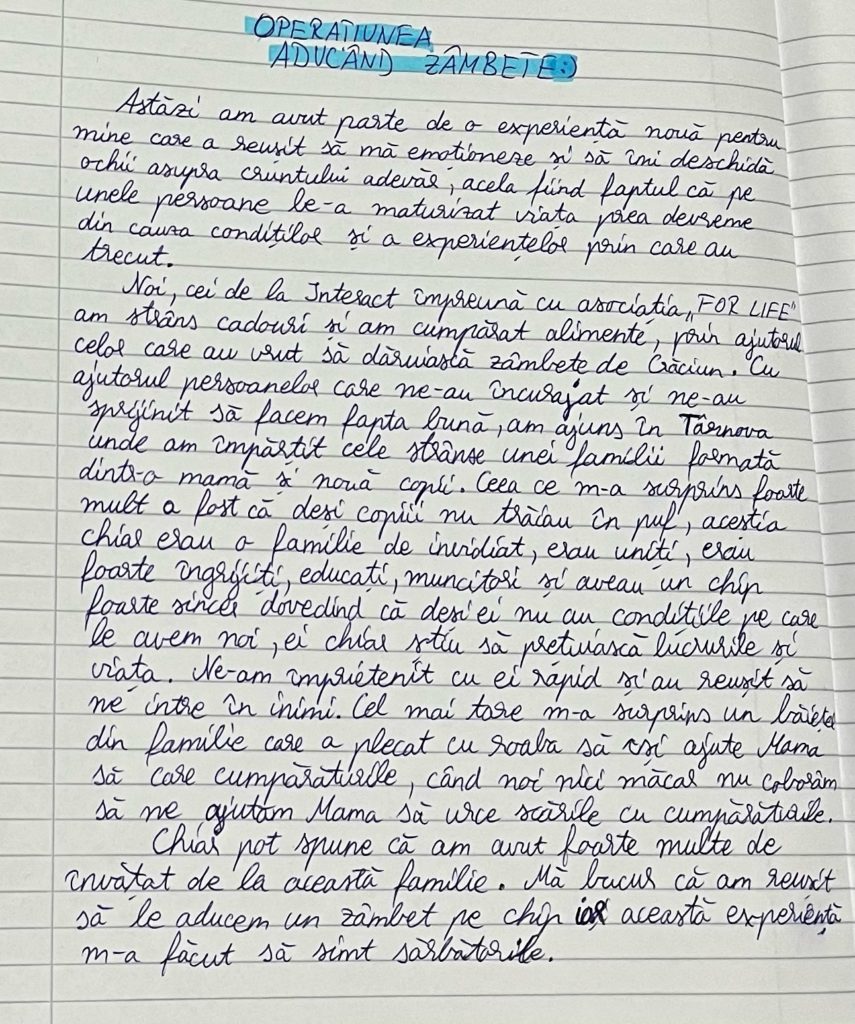 OPERAȚIUNEA
ADUCÂND ZÂMBETE:)
Astăzi am avut parte de o experiență nouă pentru
mine care a reușit să mă emoționeze și să îmi deschidă
ochii asupra cruntului adevăr, acela fiind faptul că pe
unele persoane le-a maturizat viața prea devreme
din cauza condițiilor și a experiențelor prin care au
trecut.
Noi, cei de la Interact împreună cu asociația „FOR LIFE"
am strâns cadouri și am cumpărat alimente, prin ajutorul
celor care au vrut să dăruiască zâmbete de Crăciun. Cu
ajutorul persoanelor care ne-au încurajat și ne-au
sprijinit să facem fapta bună, am ajuns în Târnova
unde am împărțit cele strânse unei familii formată
dintr-o mamă și nouă copii. Ceea ce m-a surprins foarte
mult a fost că deși copiii nu trăiau în puf, aceștia
chiar erau o familie de invidiat, erau uniți, erau
foarte îngrijiți, educați, muncitori și aveau un chip
foarte sincer dovedind că deși ei nu au condițiile pe care
le avem noi, ei chiar știu să prețuiască lucrurile și
viața. Ne-am împrietenit cu ei rapid și au reușit să
ne intre în inimi. Cel mai tare m-a surprins un băiețel
din familie care a plecat cu roaba să își ajute Mama
să care cumpărăturile, când noi nici măcar nu coborâm
să ne ajutăm Mama să urce scările cu cumpărăturile.
Chiar pot spune că am avut foarte multe de
învățat de la această familie. Mă bucur că am reușit
să le aducem un zâmbet pe chip iar această experiență
m-a făcut să simt sărbătorile.